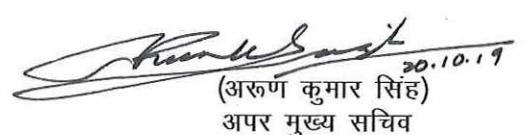 20.10.19
(अरूण कुमार सिंह)
अपर मुख्य सचिव